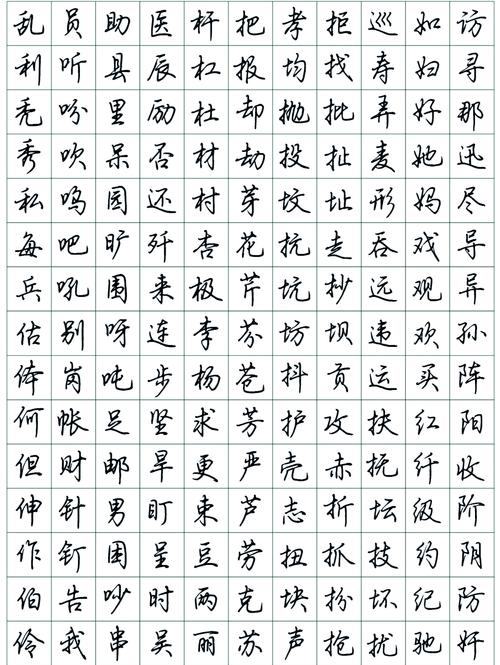 乱员助医杆把孝拒巡如访
利听县辰杠报均找寿妇寻
秃吩里励杜却抛批弄好那
秀吹呆否材劫投扯麦她迅
私呜园还村芽坟址形妈尽
每吧旷歼杏花抗走吞戏导
兵吼围来极芹坑抄远观异
估别呀连李芬坊坝违欢孙
体岗吨步杨苍抖贡运买阵
何帐足坚求芳护攻扶红阳
但财邮旱更严壳赤抚纤收
伸针男盯束芦志折坛级阶
作钉困呈豆劳扭抓技约阴
伯告吵时两克块扮坏纪防
伶我串吴丽苏声抢扰驰奸